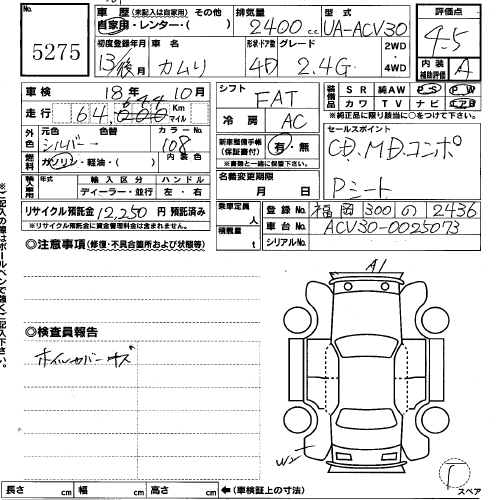 No. 5275
車歴 (未記入は自家用) その他
自家用・レンター・( )
排気量 2400 cc
型式 UA-ACV30
評価点 4.5
内装補助評価 A
初度登録年月 13/後月
車名 カムリ
形状・ドア数 4D
グレード 2.4G
2WD
4WD
車検 18年10月
走行 64,000 Km マイル
シフト FAT
冷房 AC
装備品 SR 純AW PS PW
カワ TV ナビ エアB
※純正品に限り該当に○をつけて下さい。
外色 元色 色替 カラーNo.
シルバー → 108
燃料 ガソリン・軽油・( ) 内装色
新車整備手帳(保証書付) 有・無
※書類と一緒にお預け下さい。
セールスポイント
CD、MD、コンポ
Pシート
輸入車用 輸入区分 ハンドル
ディーラー・並行 左・右
名義変更期限 月 日
リサイクル預託金 12,250 円 預託済み
※リサイクル預託金に資金管理料金は含まれません。
乗車定員 人
積載量 t
登録No. 福岡 300 の 2436
車台No. ACV30-0025073
シリアルNo.
◎注意事項 (修復・不具合箇所および状態等)
◎検査員報告
ホイルカバーキズ
A1
W2
スペア
長さ cm 幅 cm 高さ cm ←(車検証上の寸法)
※ご記入の際はボールペンで強くご記入下さい。